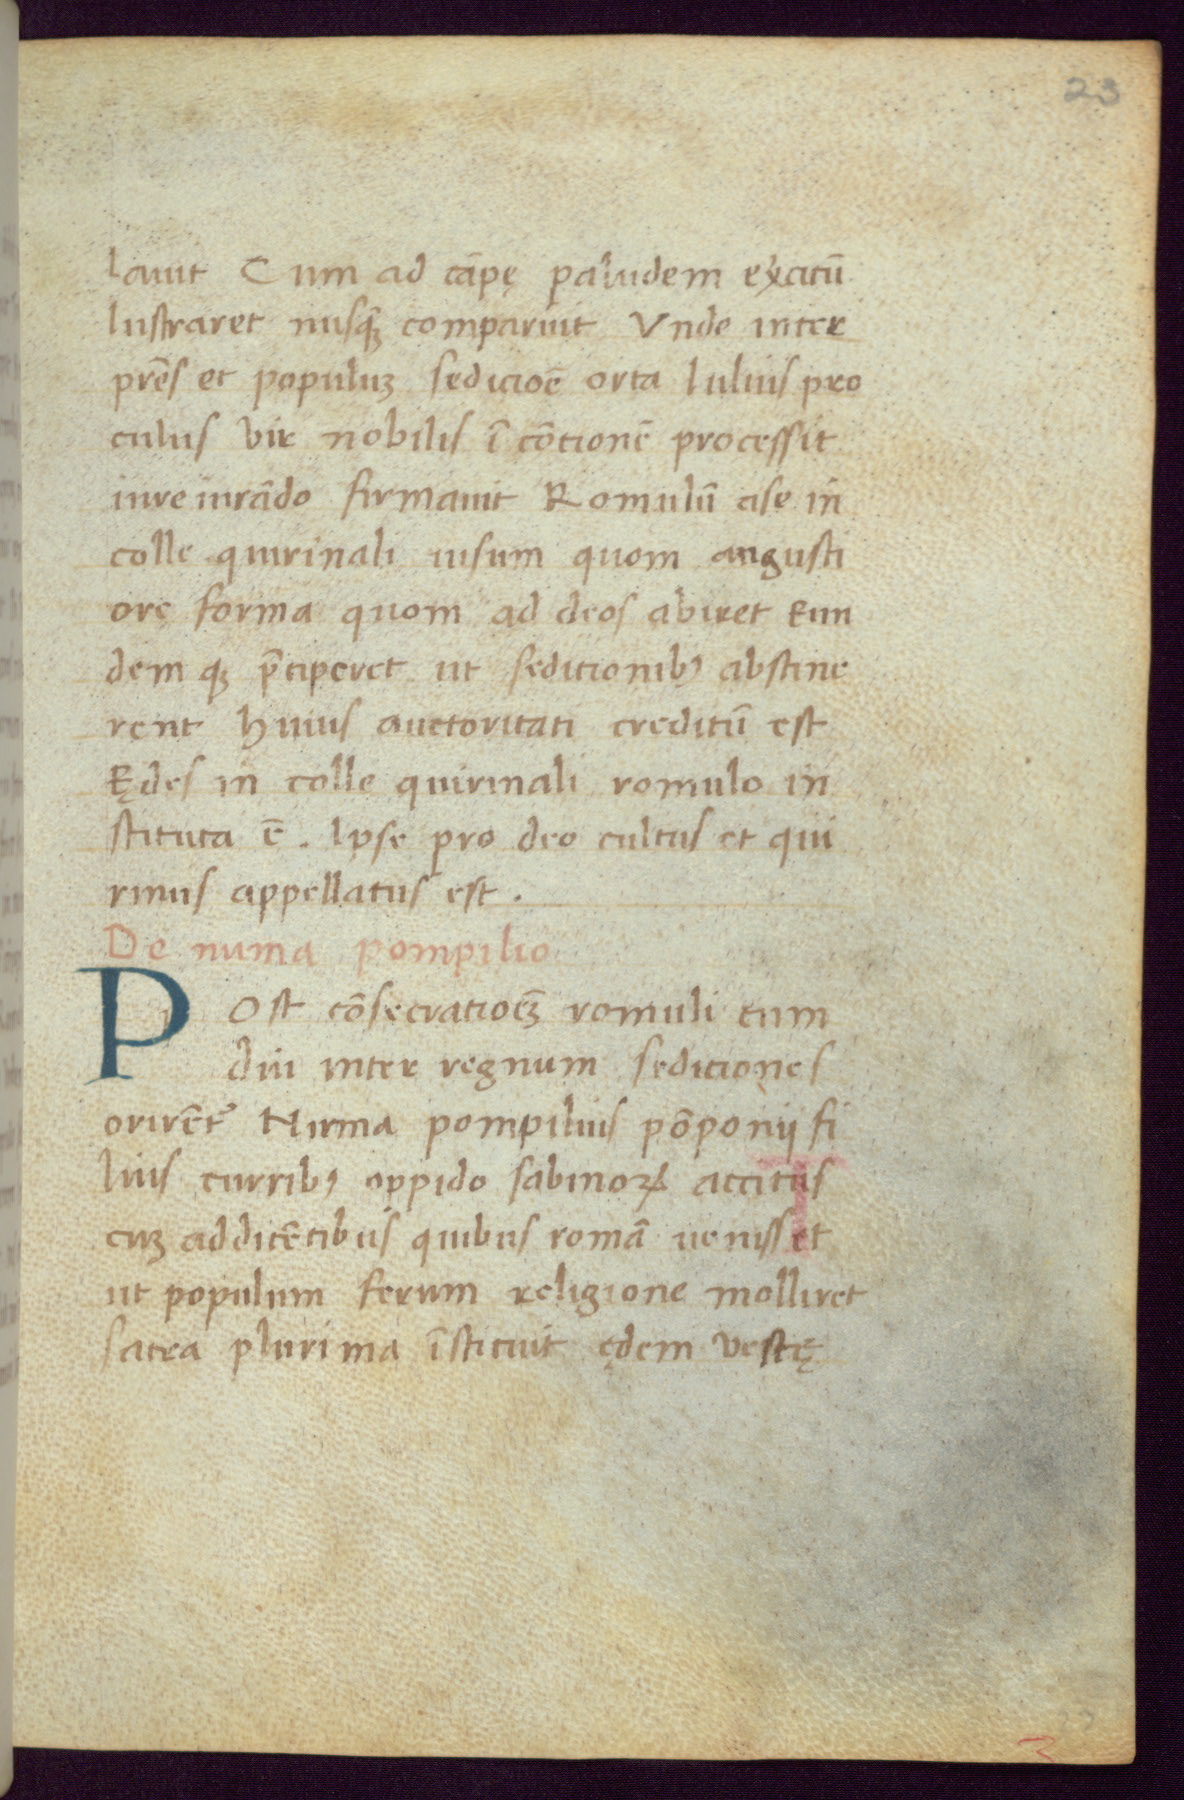 23
lauit Cum ad cāpę paludem exꝯcitū
lustraret nusqꝫ comparuit Vnde inter
pr̄es et populuꝫ sedicioē orta Iulius pro
culus vir nobilis ī cōtionē processit
iureiurādo firmauit Romulū a se in
colle quirinali uisum quom augusti
ore forma quom ad deos abiret Eun
dem qꝫ p̄ciperet ut seditionibꝯ abstine
rent huius auctoritati creditū est
Ędes in colle quirinali romulo in
stituta ē. Ipse pro deo cultus et qui
rinus appellatus est.
De numa pompilio
Post cōsecratioēꝫ romuli cum
diu inter regnum seditiones
orirēt᷑ Numa pompilius pōponij fi
lius curribꝯ oppido sabinoꝝ accitus
cuꝫ addicētibus quibus romā uenisset
ut populum ferum religione molliret
sacra plurima īstituit ędem vestę